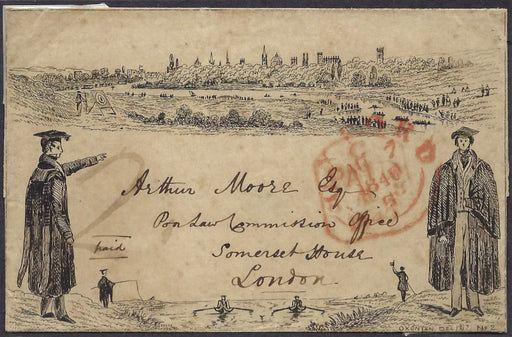 Arthur Moore Esq
Poor Law Commission Office
Somerset House
London
paid
PAID
1840
OXONIAN DELIN. No 2